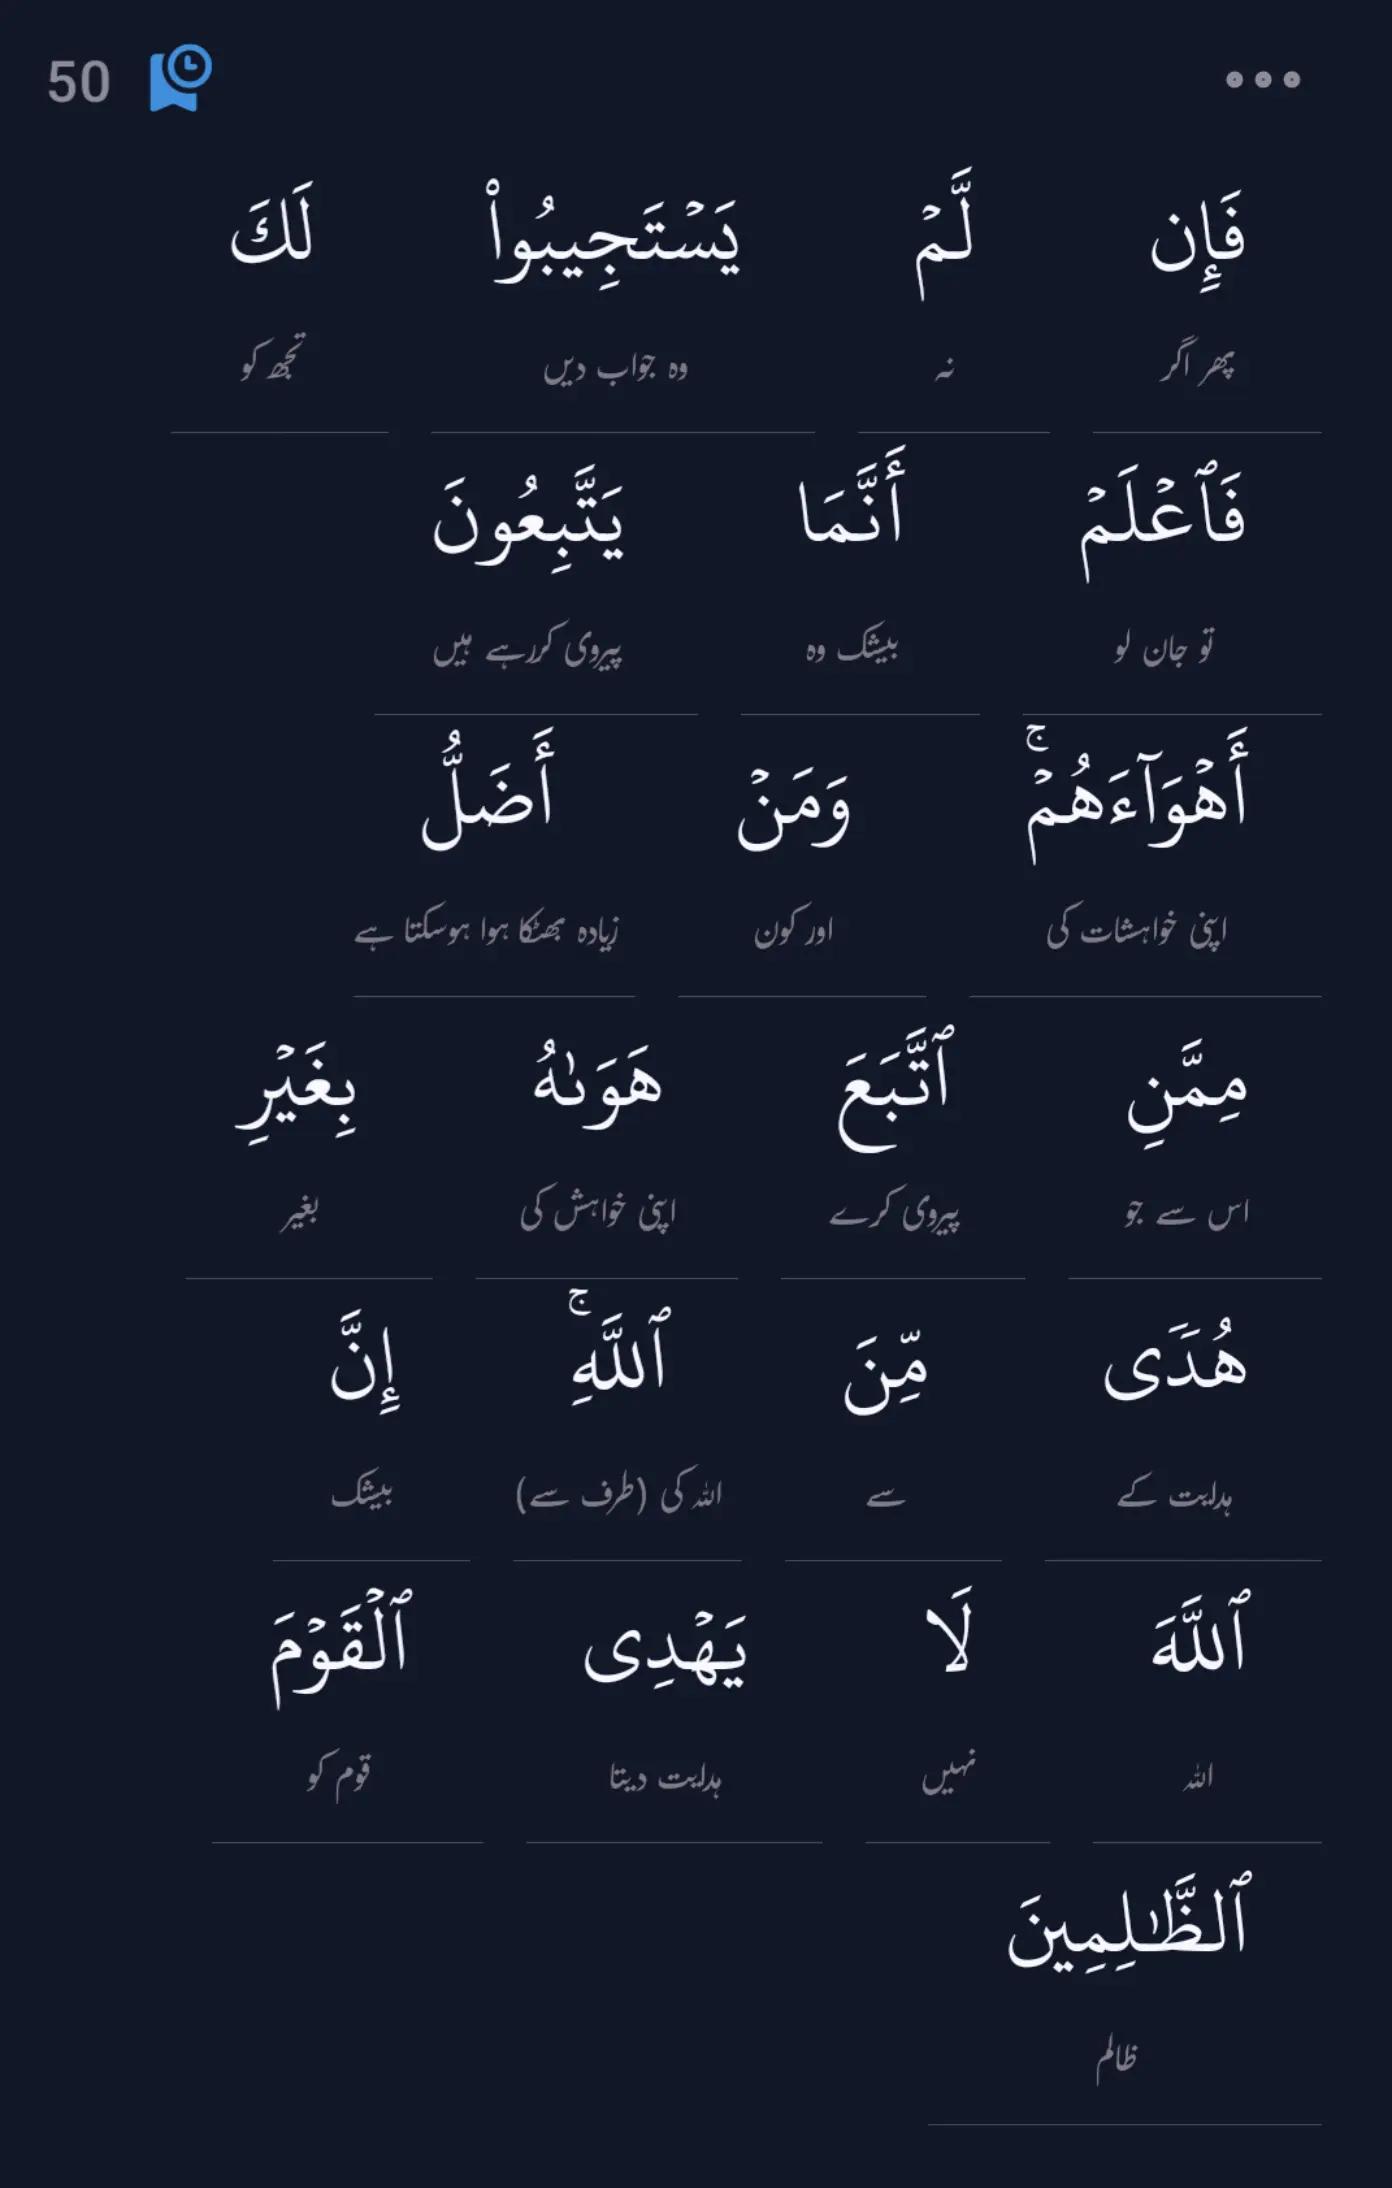 50
فَإِن لَّمْ يَسْتَجِيبُوا۟ لَكَ
پھر اگر نہ وہ جواب دیں تجھ کو
فَٱعْلَمْ أَنَّمَا يَتَّبِعُونَ
تو جان لو بیشک وہ پیروی کررہے ہیں
أَهْوَآءَهُمْ ۚ وَمَنْ أَضَلُّ
اپنی خواہشات کی اور کون زیادہ بھٹکا ہوا ہوسکتا ہے
مِمَّنِ ٱتَّبَعَ هَوَىٰهُ بِغَيْرِ
اس سے جو پیروی کرے اپنی خواہش کی بغیر
هُدًى مِّنَ ٱللَّهِ ۚ إِنَّ
ہدایت کے سے اللہ کی (طرف سے) بیشک
ٱللَّهَ لَا يَهْدِى ٱلْقَوْمَ
اللہ نہیں ہدایت دیتا قوم کو
ٱلظَّـٰلِمِينَ
ظالم